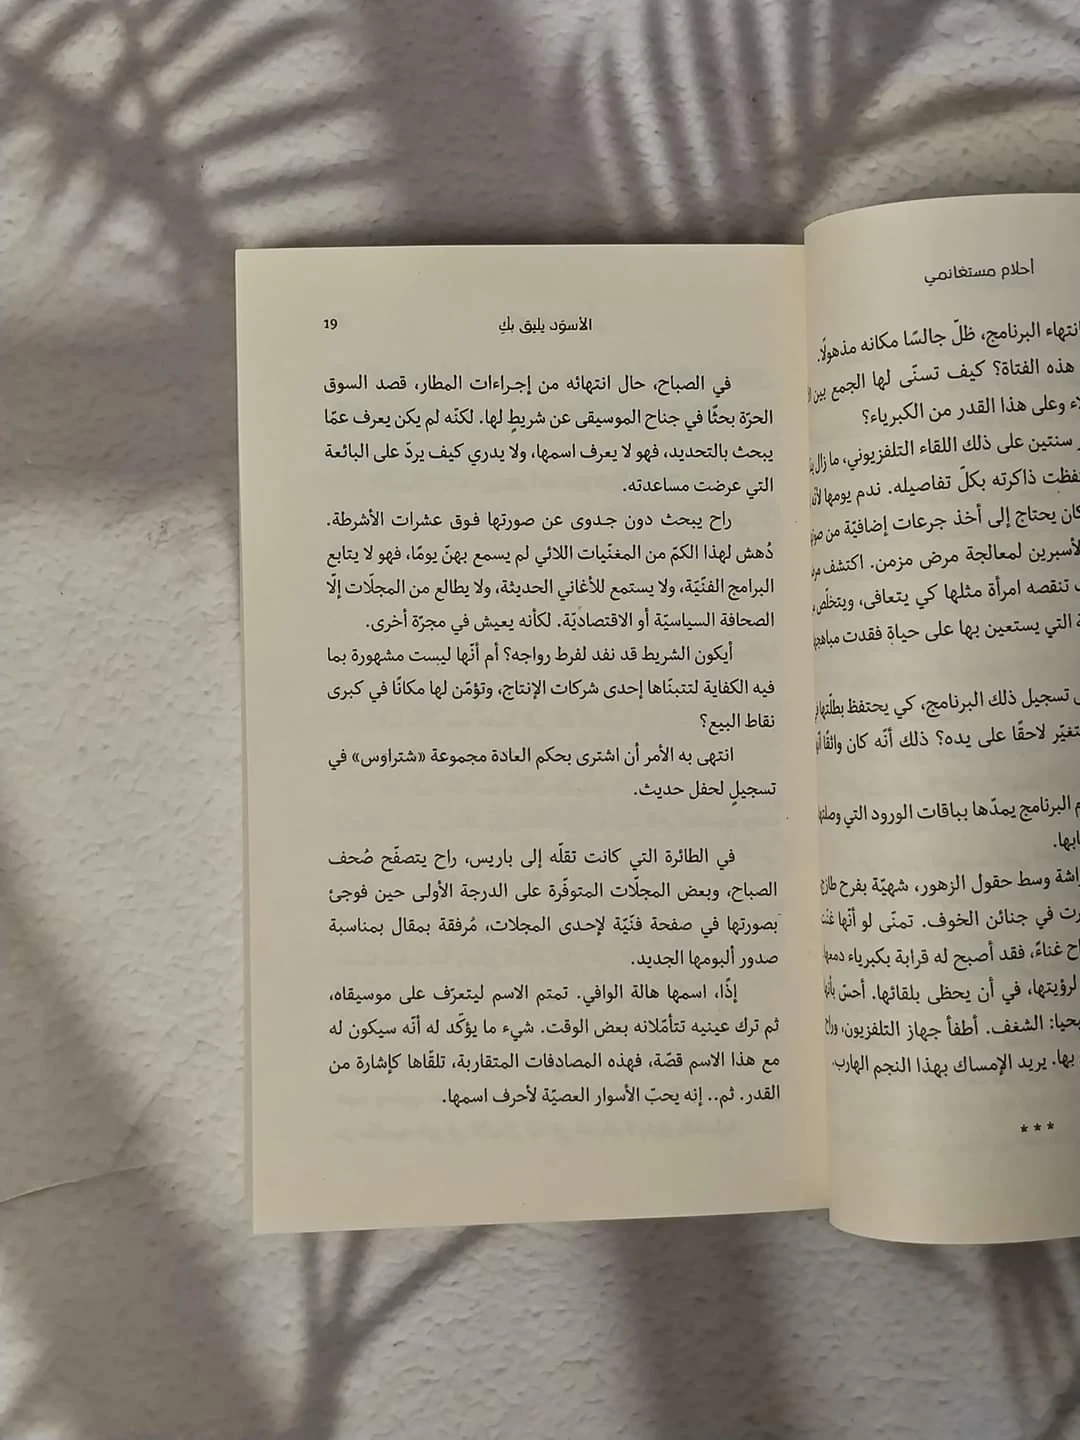 أحلام مستغانمي
انتهاء البرنامج، ظلّ جالسًا مكانه مذهولًا.
هذه الفتاة؟ كيف تسنّى لها الجمع بين
وعلى هذا القدر من الكبرياء؟
سنتين على ذلك اللقاء التلفزيوني، ما زال
ذاكرته بكلّ تفاصيله. ندم يومها لأنّه
كان يحتاج إلى أخذ جرعات إضافيّة من
الأسبرين لمعالجة مرض مزمن. اكتشف
تنقصه امرأة مثلها كي يتعافى، ويتخلّص
التي يستعين بها على حياةٍ فقدت مباهجها
تسجيل ذلك البرنامج، كي يحتفظ بطلّتها
لاحقًا على يده؟ ذلك أنّه كان واثقًا
البرنامج يمدّها بباقات الورود التي وصلتها
وسط حقول الزهور، شهيّة بفرح
في جنائن الخوف. تمنّى لو أنّها
غناءً، فقد أصبح له قرابة بكبرياء دمعها
لرؤيتها، في أن يحظى بلقائها. أحسّ بأنّها
الشغف. أطفأ جهاز التلفزيون، وراح
بها. يريد الإمساك بهذا النجم الهارب.
***
الأسوَد يليق بكِ
19
في الصباح، حال انتهائه من إجراءات المطار، قصد السوق
الحرّة بحثًا في جناح الموسيقى عن شريطٍ لها. لكنّه لم يكن يعرف عمّا
يبحث بالتحديد، فهو لا يعرف اسمها، ولا يدري كيف يردّ على البائعة
التي عرضت مساعدته.
راح يبحث دون جدوى عن صورتها فوق عشرات الأشرطة.
دُهش لهذا الكمّ من المغنّيات اللائي لم يسمع بهنّ يومًا، فهو لا يتابع
البرامج الفنّيّة، ولا يستمع للأغاني الحديثة، ولا يطالع من المجلّات إلّا
الصحافة السياسيّة أو الاقتصاديّة. لكأنه يعيش في مجرّة أخرى.
أيكون الشريط قد نفد لفرط رواجه؟ أم أنّها ليست مشهورة بما
فيه الكفاية لتتبنّاها إحدى شركات الإنتاج، وتؤمّن لها مكانًا في كبرى
نقاط البيع؟
انتهى به الأمر أن اشترى بحكم العادة مجموعة «شتراوس» في
تسجيلٍ لحفل حديث.
في الطائرة التي كانت تقلّه إلى باريس، راح يتصفّح صُحف
الصباح، وبعض المجلّات المتوفّرة على الدرجة الأولى حين فوجئ
بصورتها في صفحة فنّيّة لإحدى المجلات، مُرفقة بمقال بمناسبة
صدور ألبومها الجديد.
إذًا، اسمها هالة الوافي. تمتم الاسم ليتعرّف على موسيقاه،
ثم ترك عينيه تتأمّلانه بعض الوقت. شيء ما يؤكّد له أنّه سيكون له
مع هذا الاسم قصّة، فهذه المصادفات المتقاربة، تلقّاها كإشارة من
القدر. ثم.. إنه يحبّ الأسوار العصيّة لأحرف اسمها.